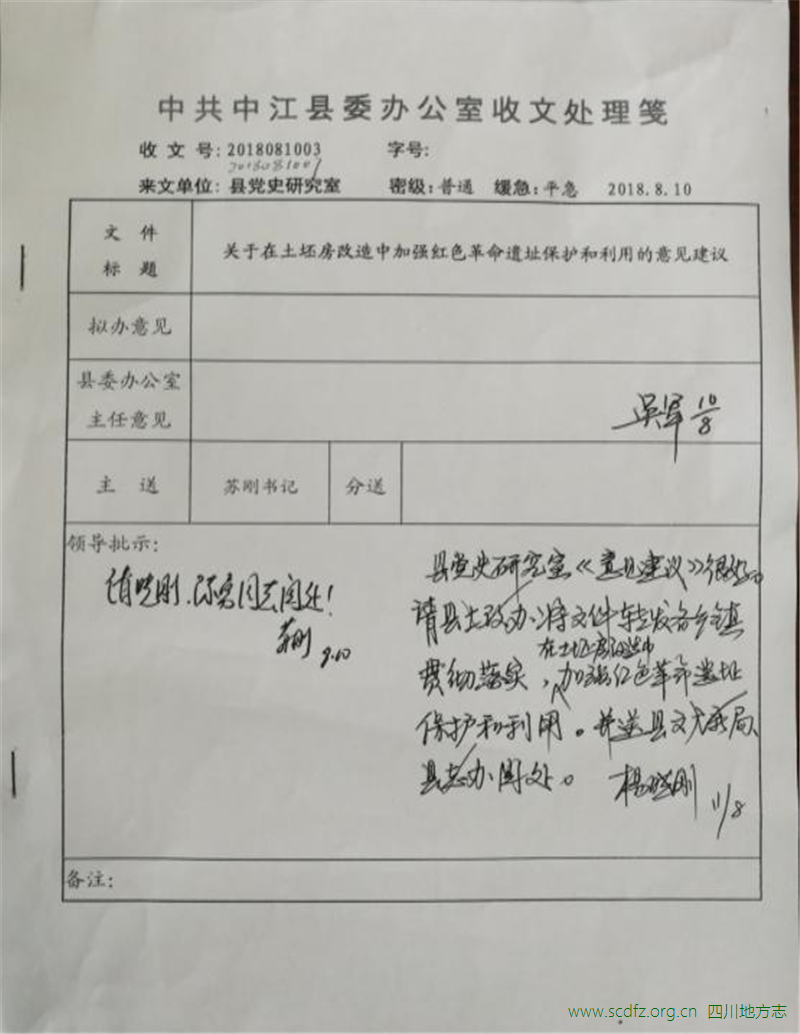 中共中江县委办公室收文处理笺
收文号：2018081003 字号：
2018081001
来文单位：县党史研究室 密级：普通 缓急：平急 2018.8.10
文件
标题
关于在土坯房改造中加强红色革命遗址保护和利用的意见建议
拟办意见
县委办公室
主任意见
吴军 10/8
主送 苏刚书记 分送
领导批示：
请晓刚、陈亮同志阅处！
苏刚
县党史研究室《意见建议》很好。
请县土改办将文件转发各乡镇
贯彻落实，在土坯房改造中加强红色革命遗址
保护和利用。并送县文广新局、
县志办阅处。 杨晓刚 11/8
备注：
www.scdfz.org.cn 四川地方志